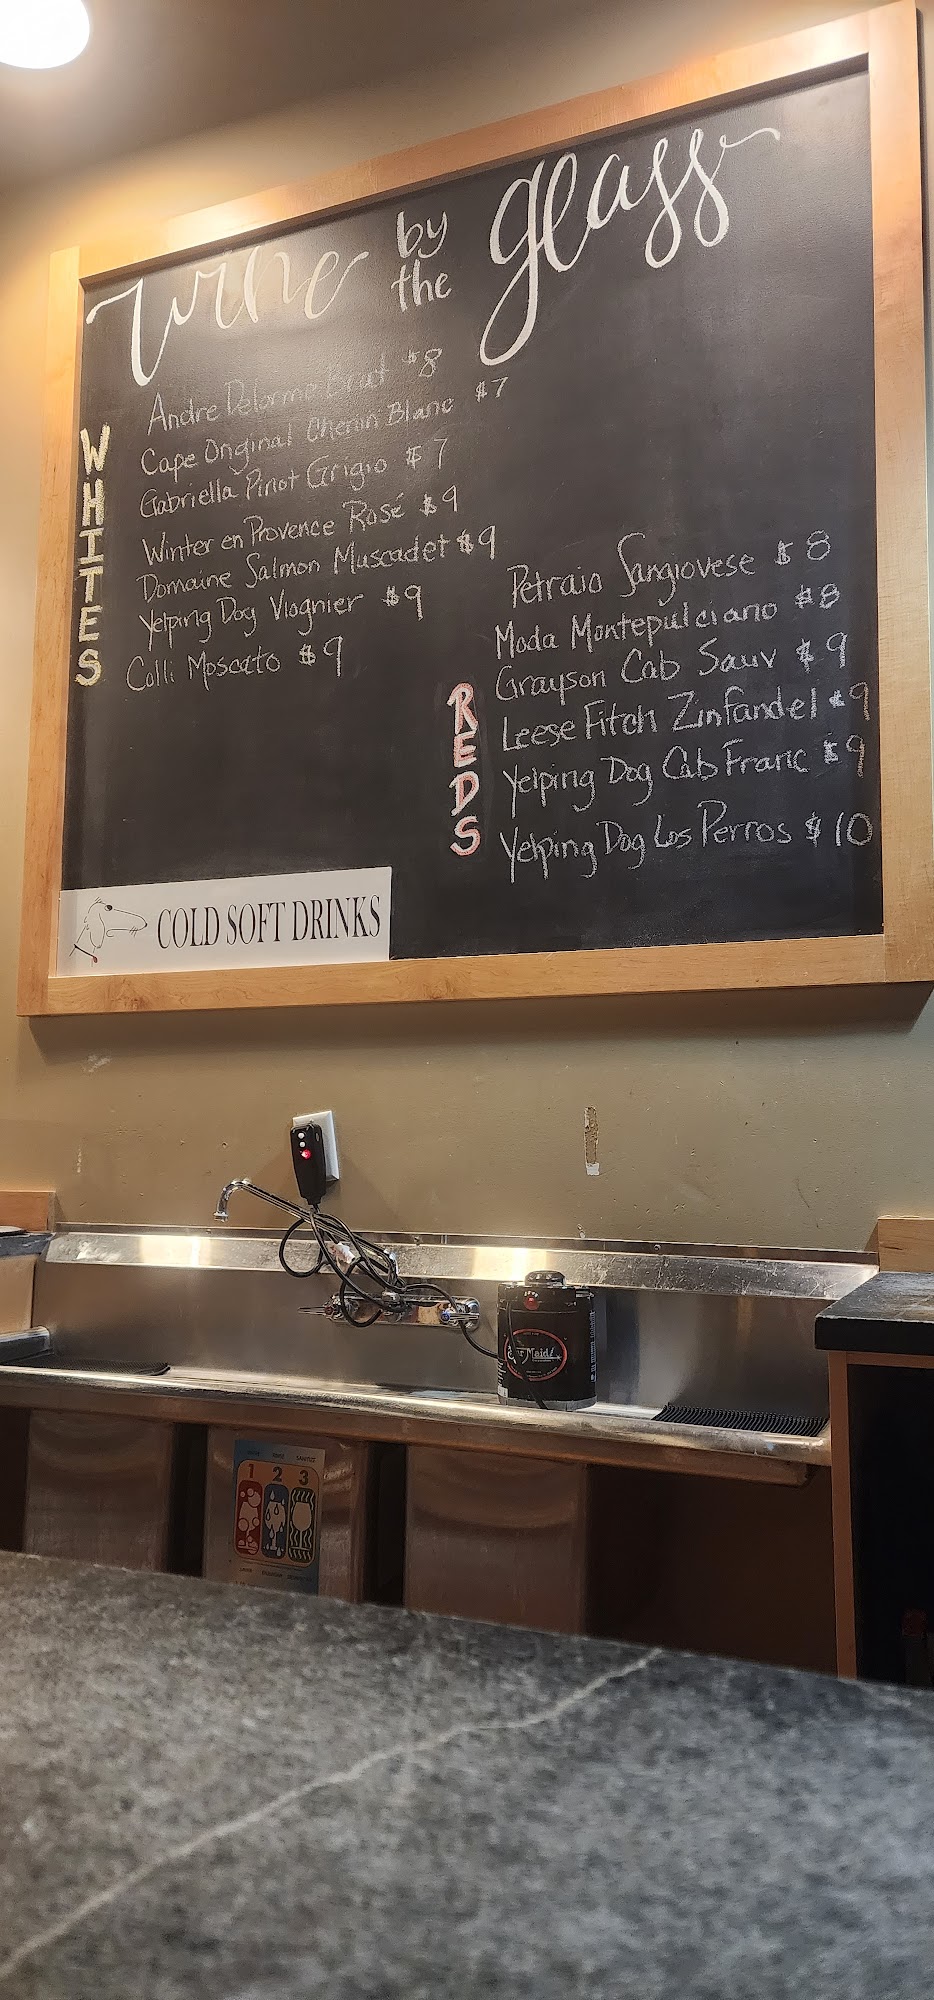 wine by the glass
WHITES
Andre Delorme Brut $8
Cape Original Chenin Blanc $7
Gabriella Pinot Grigio $7
Winter en Provence Rosé $9
Domaine Salmon Muscadet $9
Yelping Dog Viognier $9
Colli Moscato $9
REDS
Petraio Sangiovese $8
Moda Montepulciano $8
Grayson Cab Sauv $9
Leese Fitch Zinfandel $9
Yelping Dog Cab Franc $9
Yelping Dog Los Perros $10
COLD SOFT DRINKS
Bar Maid
1 2 3